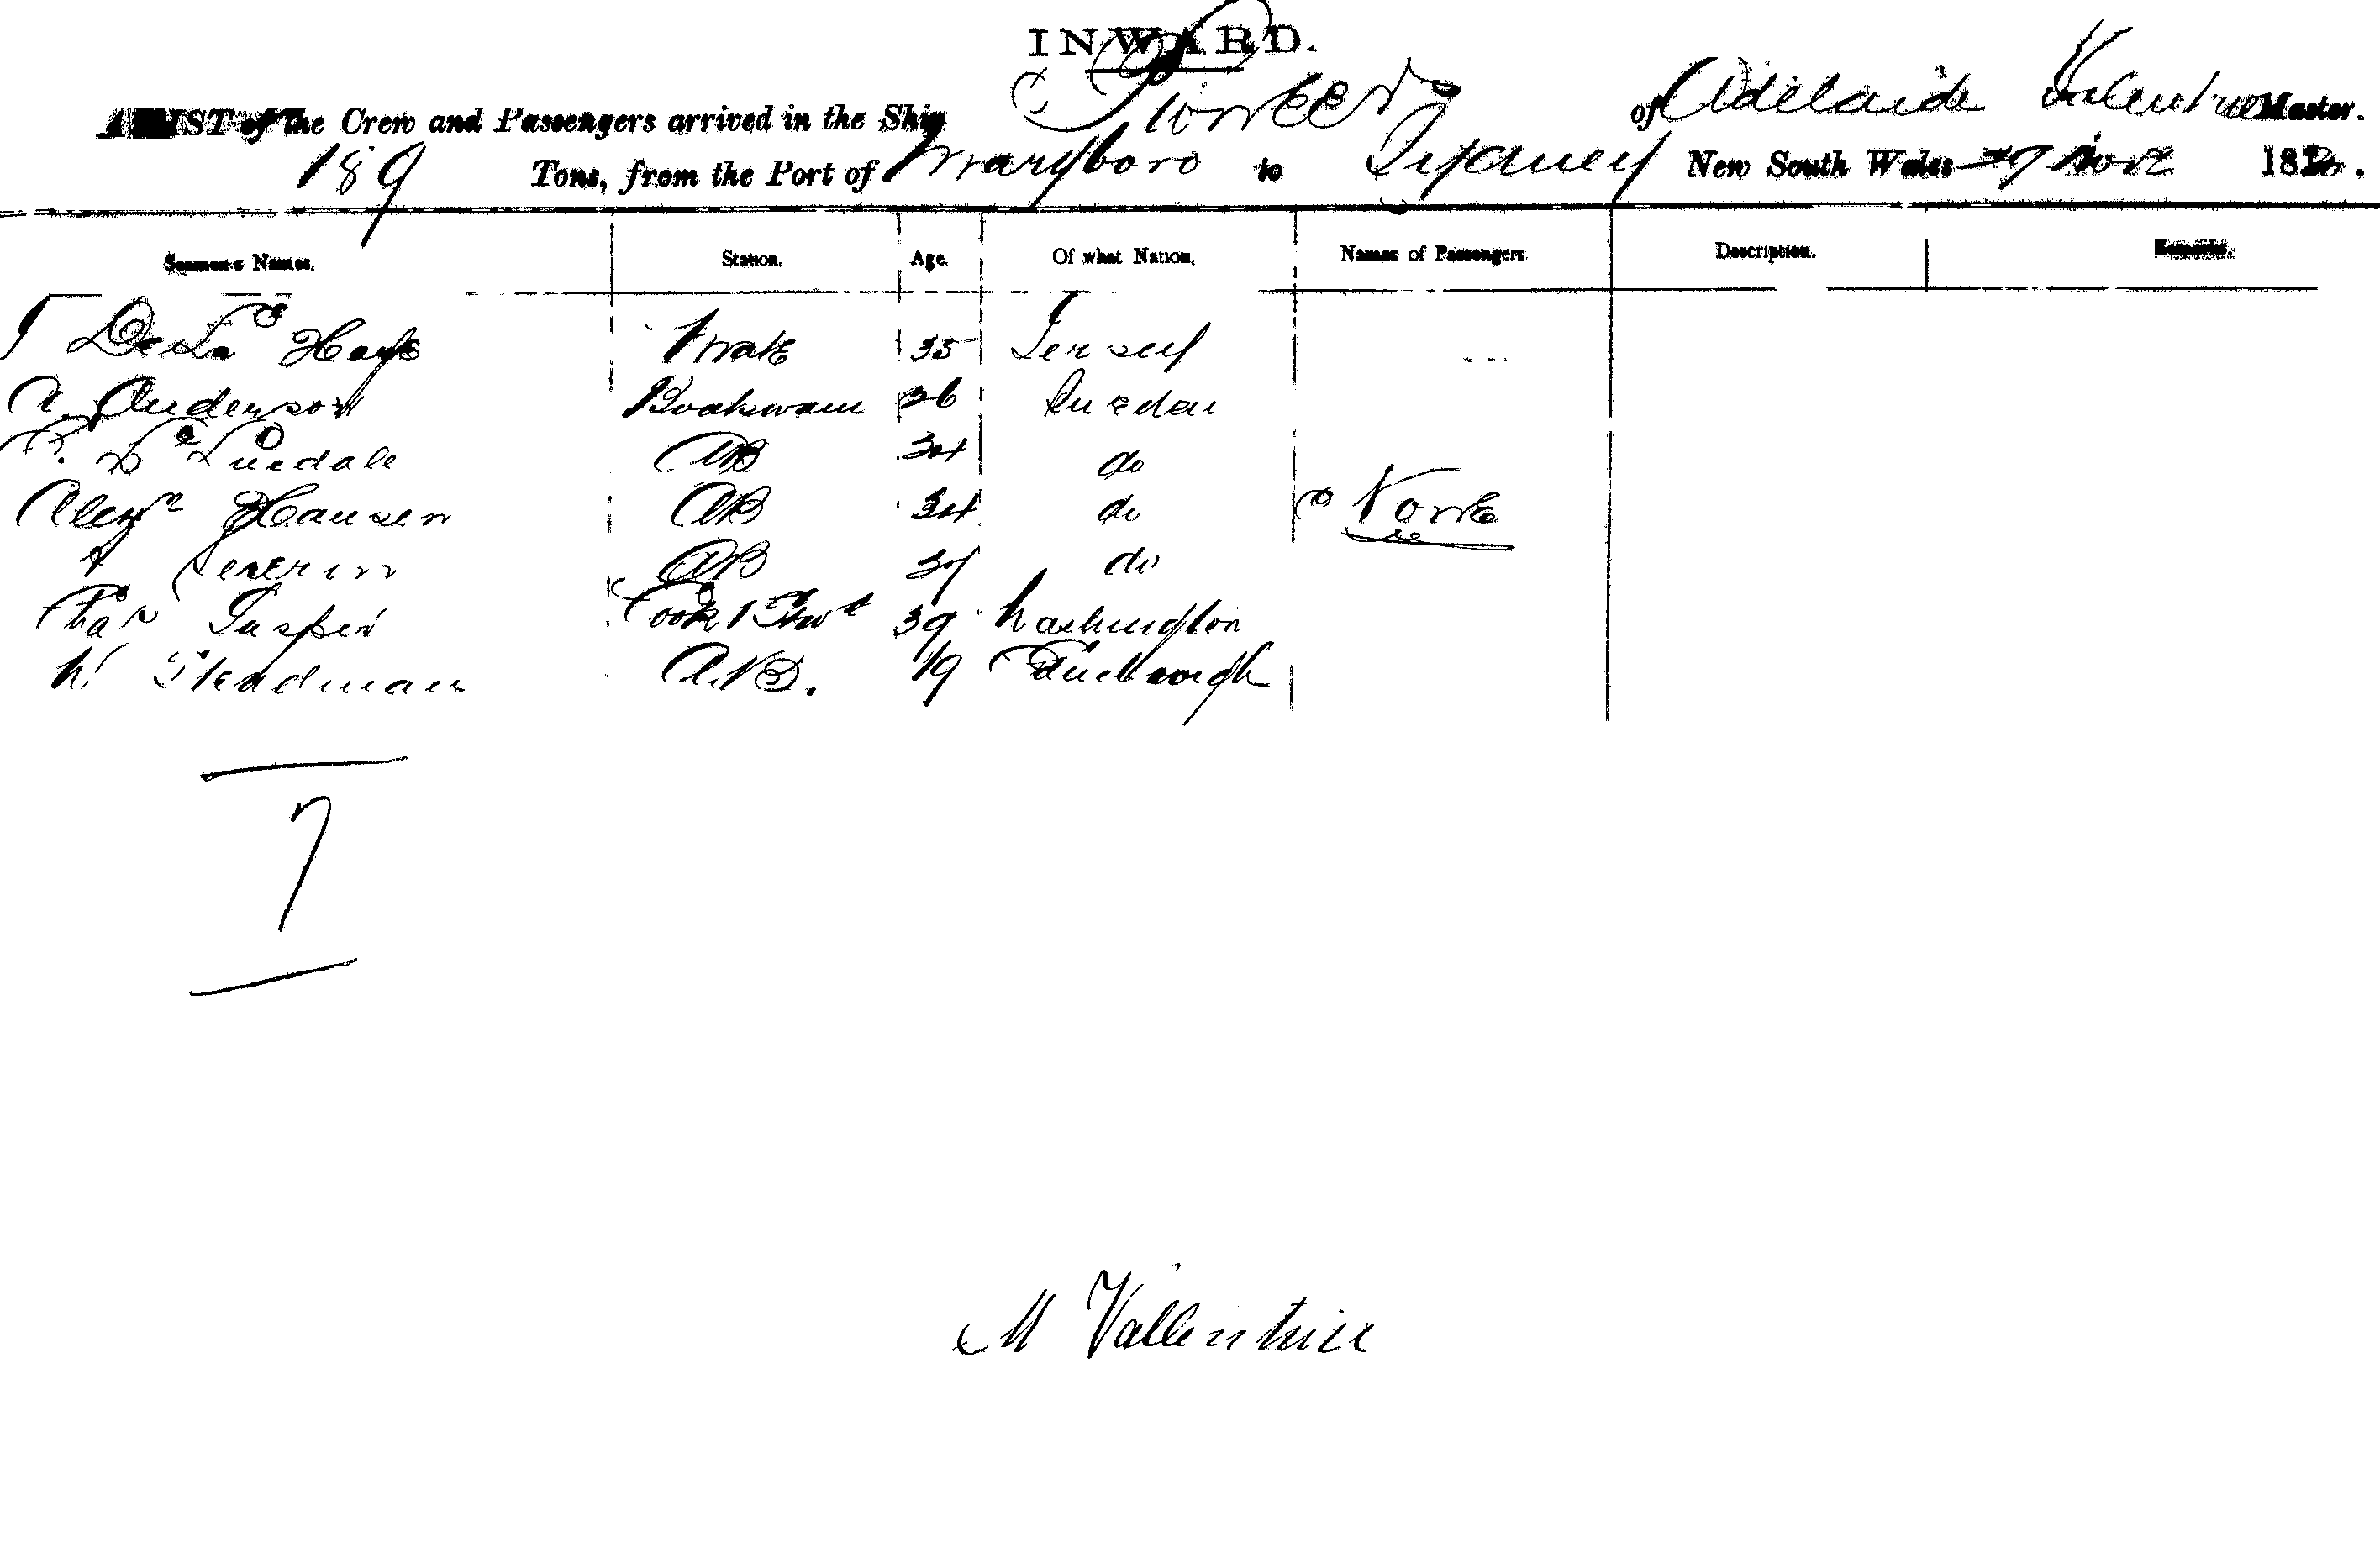 INWARD.
A LIST of the Crew and Passengers arrived in the Ship Pioneer of Adelaide Valentine Master.
189 Tons, from the Port of Maryboro to Sydney New South Wales Novr 18
Seamen's Names. Station. Age. Of what Nation. Names of Passengers. Description. Remarks.
De La Haye Mate 35 Jersey
A. Anderson Boatswain 26 Sweden
AB 34 do
Alexr Hansen AB 34 do None
Severin AB 37 do
Chas Jasper Cook & Stwd 39 Washington
W Steadman A.B. 19 Edinburgh
7
M Vallentine